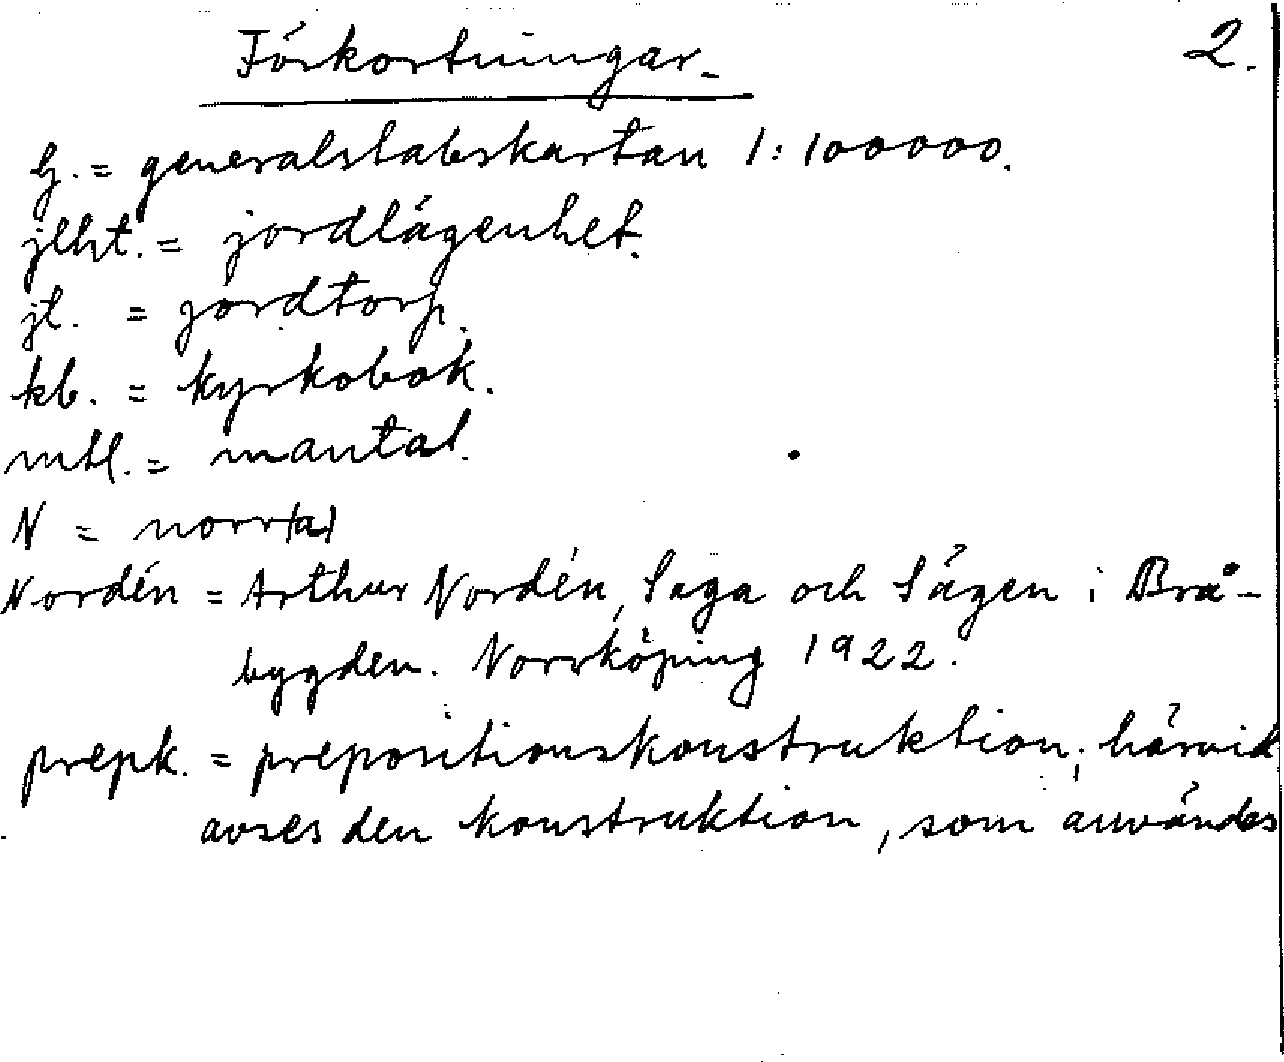 Förkortningar. 2.
G. = generalstabskartan 1:100000.
jlht. = jordlägenhet.
jt. = jordtorp.
kb. = kyrkobok.
mtl. = mantal.
N = norr(a)
Nordén = Arthur Nordén, Saga och Sägen i Brå-
bygden. Norrköping 1922.
prepk. = prepositionskonstruktion; härvid
avses den konstruktion, som användes